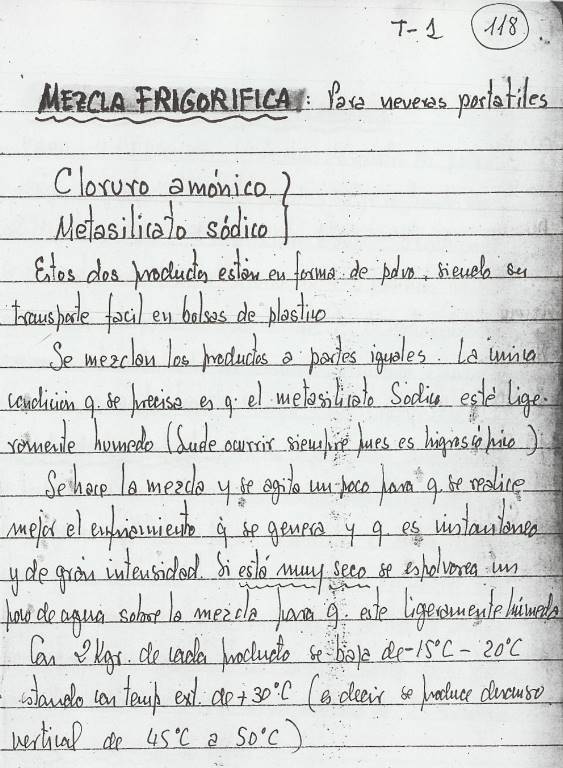 T-1 118
MEZCLA FRIGORIFICA: Para neveras portatiles
Cloruro amónico }
Metasilicato sódico }
Estos dos productos están en forma de polvo, siendo su
transporte facil en bolsas de plastico
Se mezclan los productos a partes iguales. La unica
condición q. se precisa es q. el metasilicato Sódico esté lige-
ramente humedo (Suele ocurrir siempre pues es higroscópico)
Se hace la mezcla y se agita un poco para q. se realice
mejor el enfriamiento q se genera y q. es instantáneo
y de gran intensidad. Si está muy seco se espolvorea un
poco de agua sobre la mezcla para q. este ligeramente húmeda
Con 2 Kgr. de cada producto se baja de -15°C - 20°C
estando con temp ext. de +30°C (es decir se produce descenso
vertical de 45°C a 50°C)